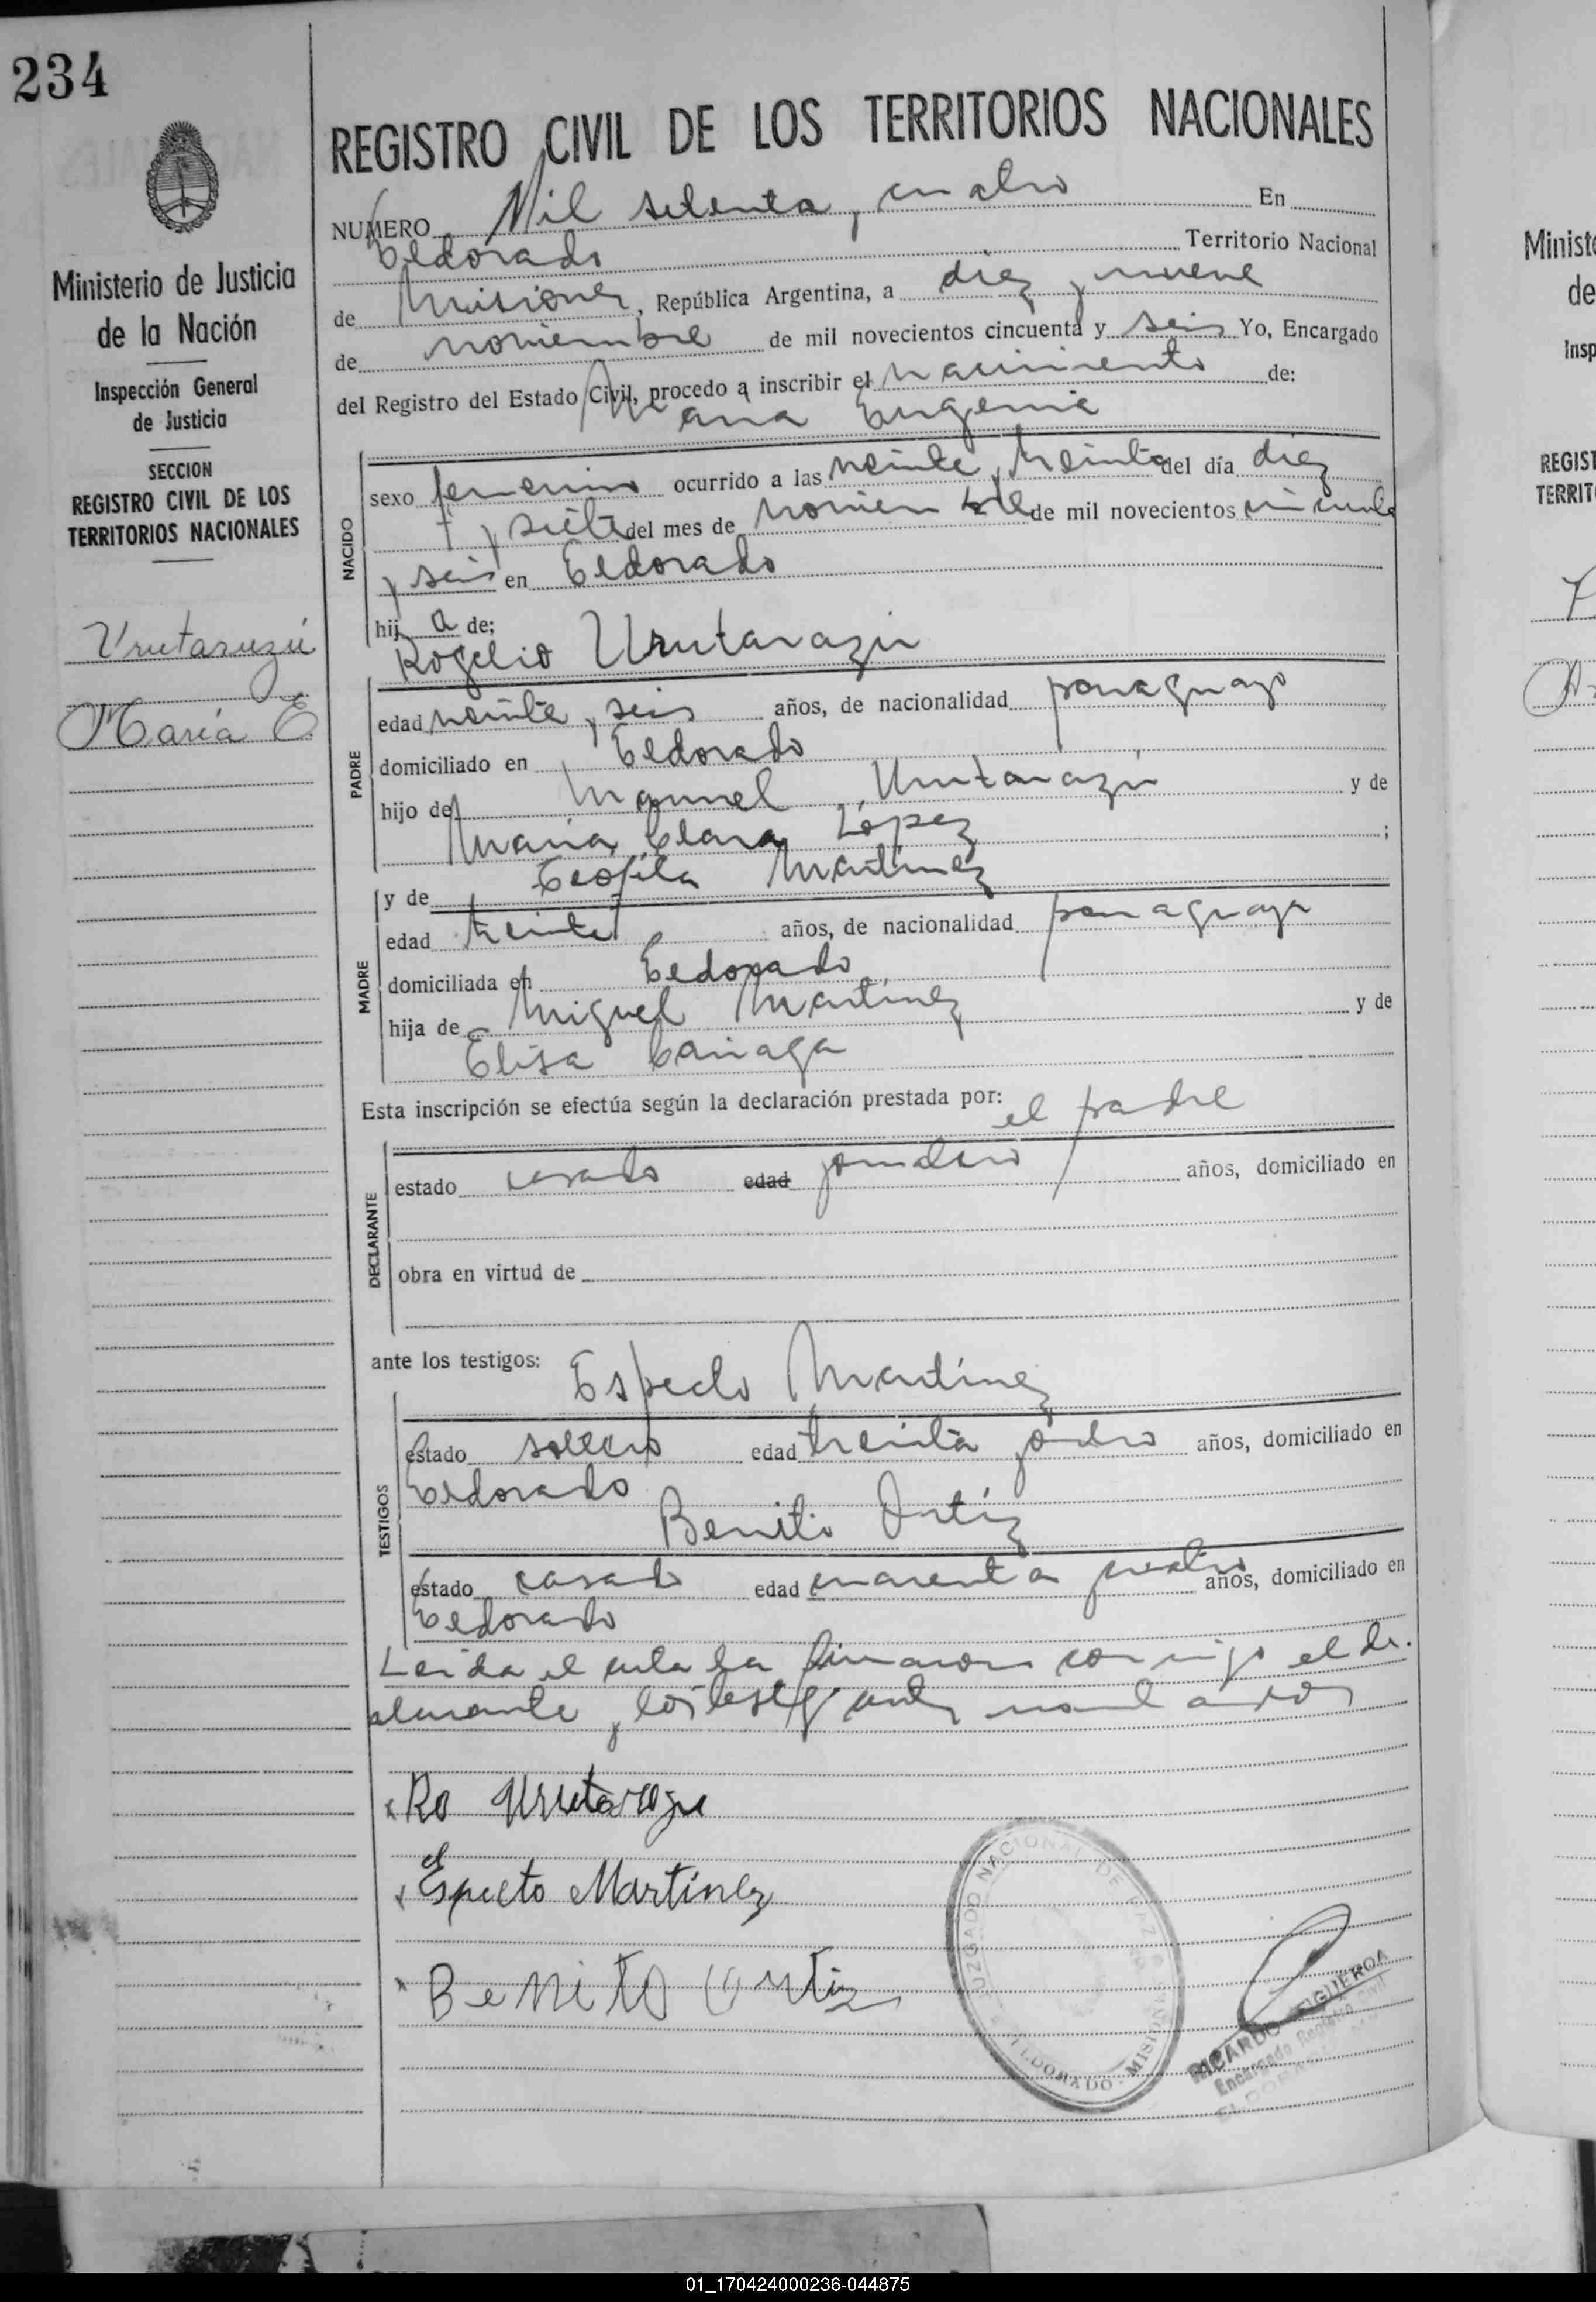 234
Ministerio de Justicia
de la Nación
Inspección General
de Justicia
SECCION
REGISTRO CIVIL DE LOS
TERRITORIOS NACIONALES
Urutaruzú
María E
REGISTRO CIVIL DE LOS TERRITORIOS NACIONALES
NUMERO Mil setenta y cuatro En
Eldorado Territorio Nacional
de Misiones, República Argentina, a diez y nueve
de noviembre de mil novecientos cincuenta y seis Yo, Encargado
del Registro del Estado Civil, procedo a inscribir el nacimiento de:
María Eugenia
NACIDO
sexo femenino ocurrido a las veinte y treinta del día diez
y siete del mes de noviembre de mil novecientos cincuenta
y seis en Eldorado
hija de;
Rogelio Urutarazú
PADRE
edad veinte y seis años, de nacionalidad paraguayo
domiciliado en Eldorado
hijo de Manuel Urutarazú y de
María Clara López ;
y de Teofila Martínez
MADRE
edad treinta años, de nacionalidad paraguaya
domiciliada en Eldorado
hija de Miguel Martínez y de
Elisa Cariaga
Esta inscripción se efectúa según la declaración prestada por:
el padre
DECLARANTE
estado casado edad jornalero años, domiciliado en
obra en virtud de
ante los testigos:
Especto Martínez
TESTIGOS
estado soltero edad treinta y ocho años, domiciliado en
Eldorado
Benito Ortíz
estado casado edad cuarenta y cuatro años, domiciliado en
Eldorado
Leida el acta la firmaron conmigo el de-
clarante y los testigos
Ro Urrutarazu
Especto Martínez
Benito Ortiz
JUZGADO NACIONAL DE PAZ
ELDORADO - MISIONES
RICARDO FIGUEROA
Encargado Registro Civil
ELDORADO
Minist
de
Insp
REGIST
TERRIT
01_170424000236-044875